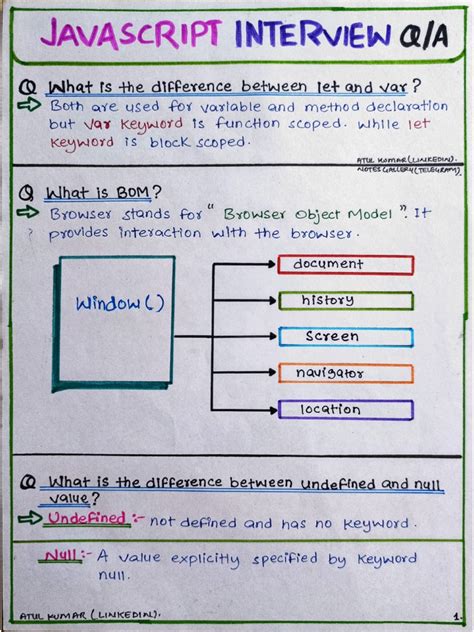 JAVASCRIPT INTERVIEW Q/A
Q What is the difference between let and var?
Both are used for variable and method declaration
but var keyword is function scoped. while let
keyword is block scoped.
ATUL KUMAR (LINKEDIN).
NOTES GALLERY (TELEGRAM)
Q What is BOM?
Browser stands for "Browser Object Model". It
provides interaction with the browser.
Window()
document
history
screen
navigator
location
Q What is the difference between undefined and null
value?
Undefined :- not defined and has no keyword.
Null :- A value explicitly specified by keyword
null.
ATUL KUMAR (LINKEDIN).
1.